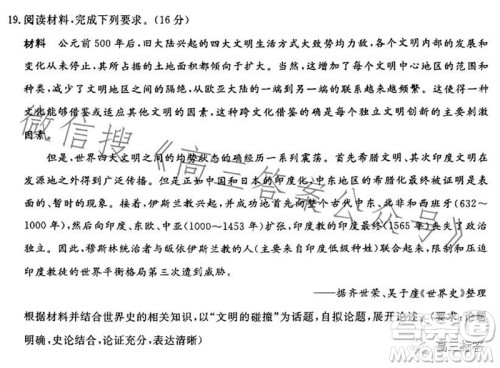 19.阅读材料,完成下列要求。(16分)
材料 公元前500年后,旧大陆兴起的四大文明生活方式大致势均力敌,各个文明内部的发展和
变化从未停止,其所占据的土地面积都倾向于扩大。当然,这增加了每个文明中心地区的范围和
种类,减少了文明地区之间的隔绝状态,从欧亚大陆的一端到另一端的联系越来越频繁。这使得一
种文化能够借鉴或适应其他文明的因素,这种跨文化借鉴的确是每个独立文明创新的主要刺激
因素。
但是,世界四大文明之间的均势状态的确经历一系列震荡。首先希腊文明、其次印度文明在
发源地之外得到广泛传播。但是,正如中国和日本的印度化,中东地区的希腊化最终被证明是表
面的、暂时的现象。接着,伊斯兰教兴起,并成功地首先征服了古代中东、北非和西班牙(632~
1000年),然后向印度、东欧、中亚(1000~1453年)扩张。印度教的印度最终(1565年)丧失了政治
独立。因此,穆斯林统治者与皈依伊斯兰教的人(主要来自印度低级种姓)联合起来,限制和压迫
印度教徒的世界平衡格局第三次遭到威胁。
——据齐世荣、吴于廑《世界史》整理
根据材料并结合世界史的相关知识,以“文明的碰撞”为话题,自拟论题,展开论述。(要求:论题
明确,史论结合,论证充分,表述清晰)
微信搜《高三答案公众号》
答案圈
高三标答